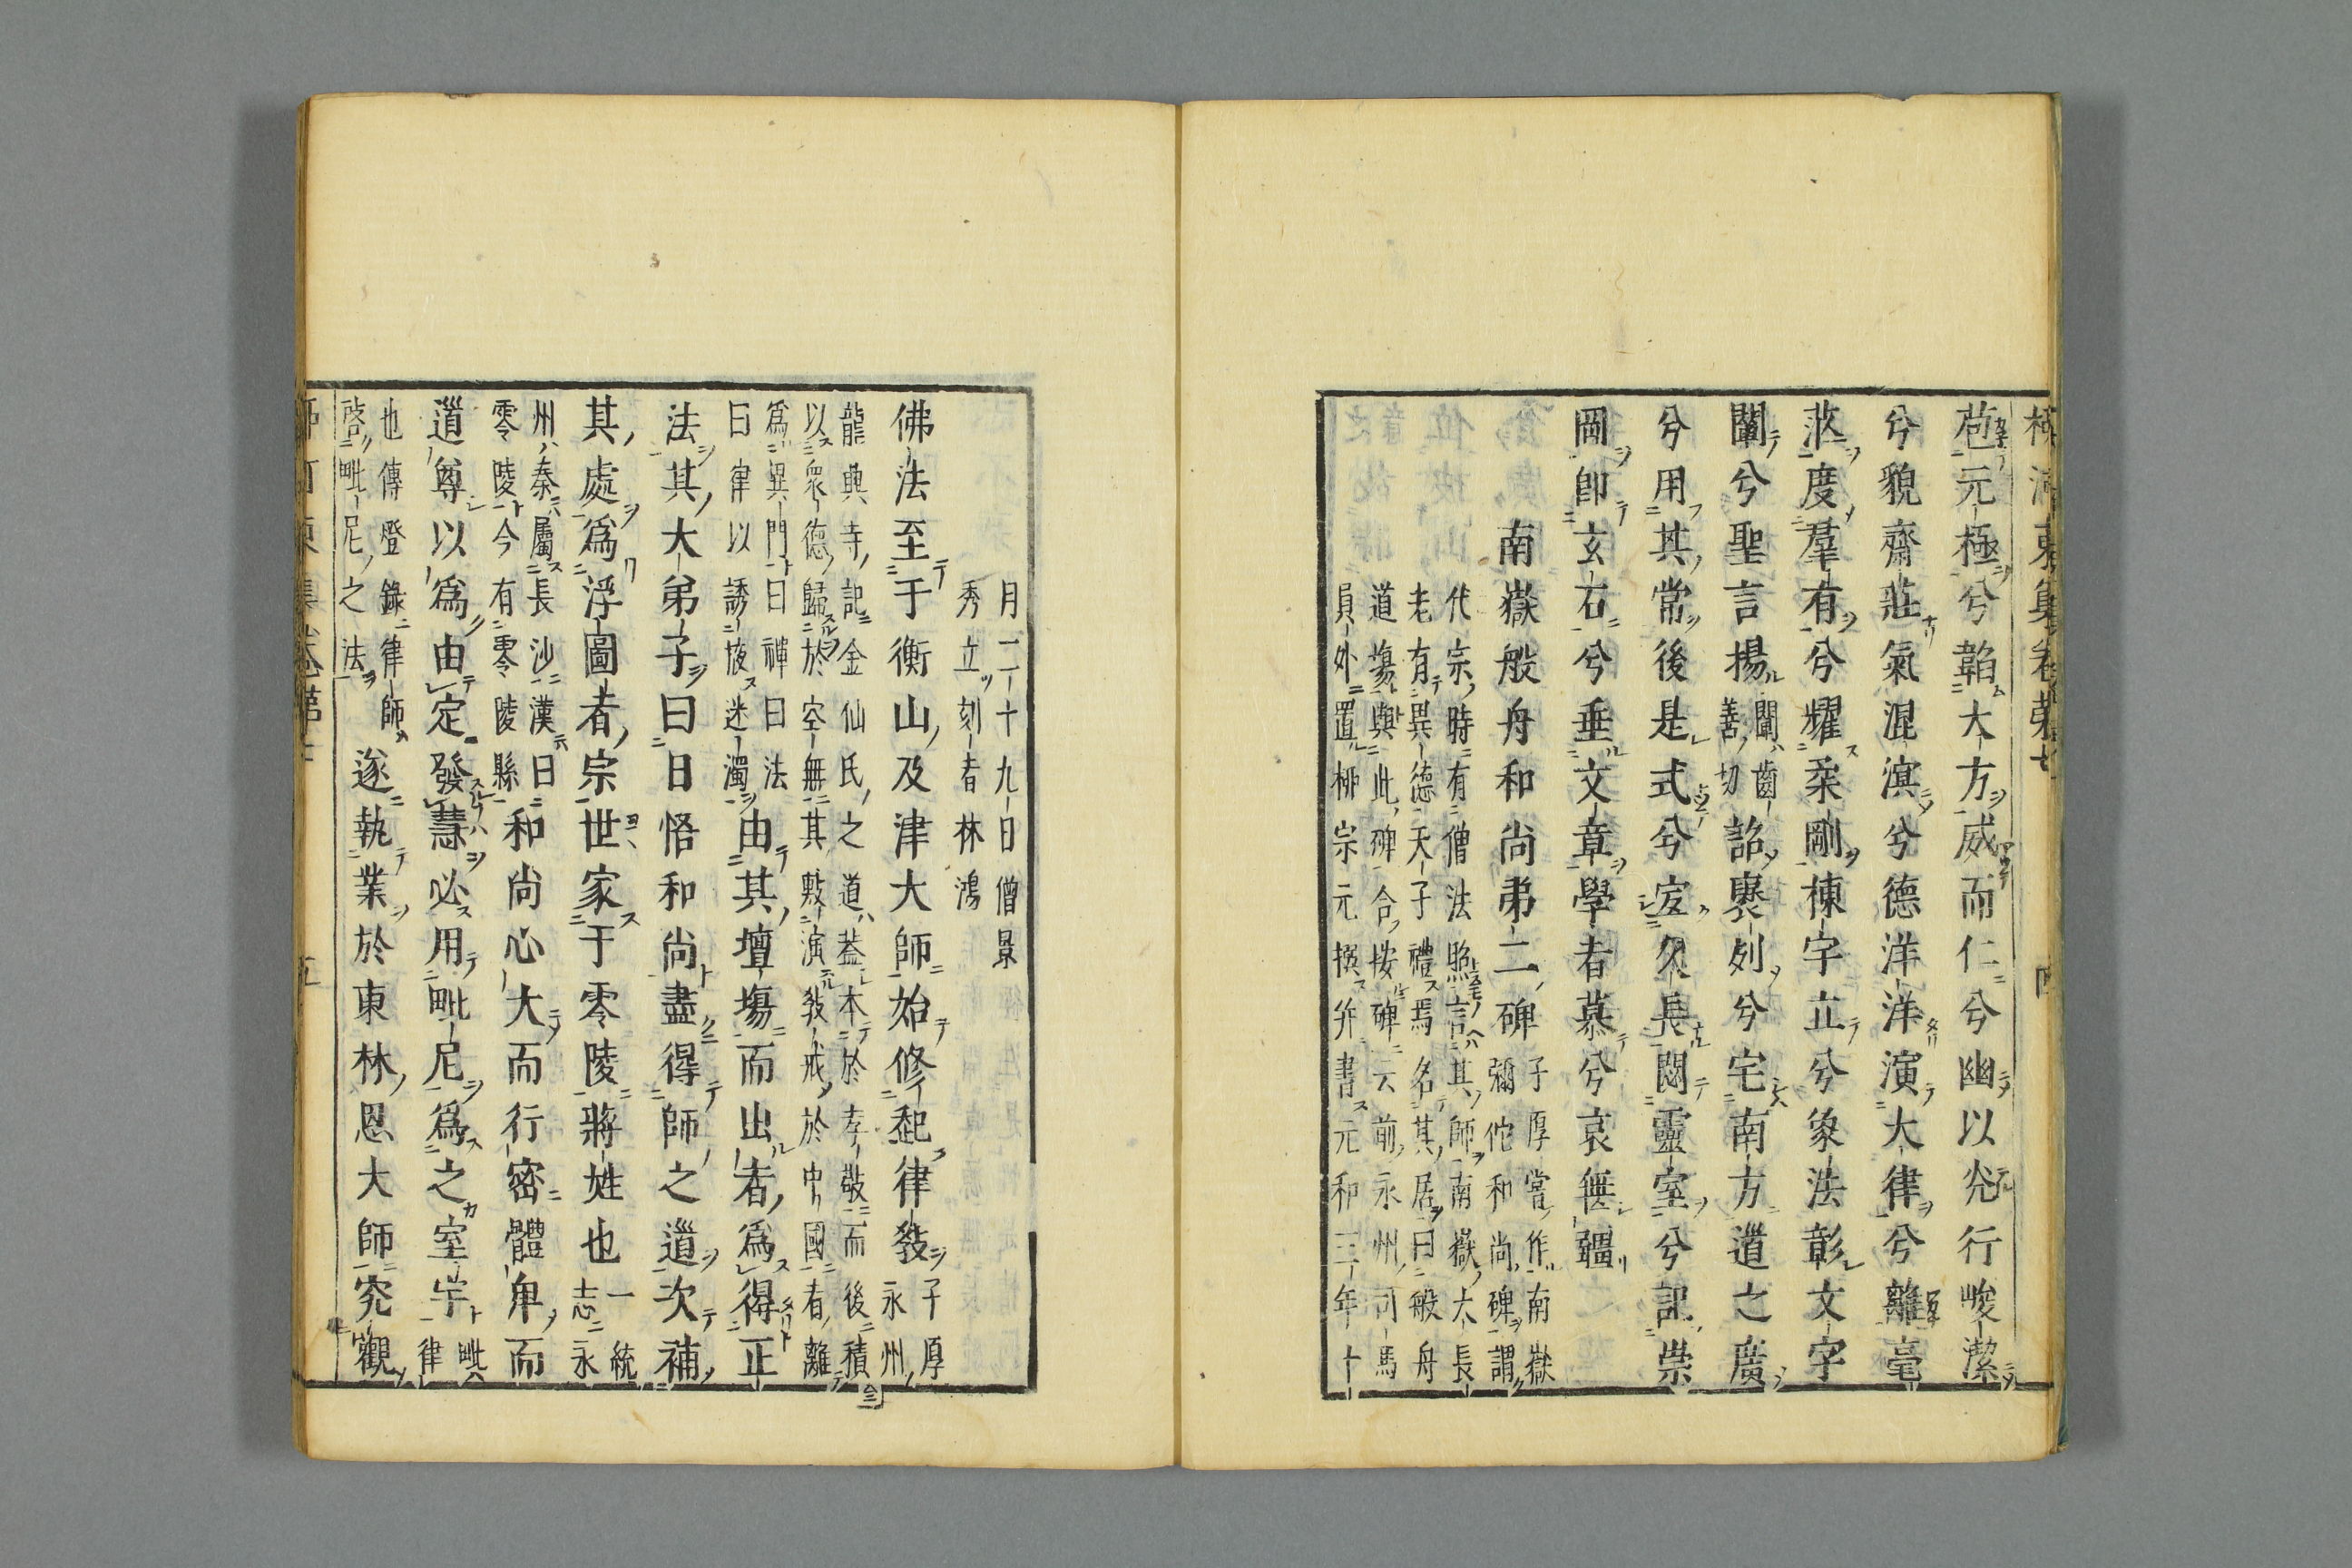 柳河東集卷第七
苞元極兮韜大方威而仁兮幽以光行峻潔
兮貌齋莊氣混溟兮德洋洋演大律兮離毫
茫度羣有兮耀柔剛棟宇立兮象法彰文字
闡兮聖言揚闡齒善切詔褒列兮宅南方道之廣
兮用其常後是式兮宜久長閟靈室兮記崇
岡即玄石兮垂文章學者慕兮哀無疆
南嶽般舟和尚弟二碑子厚嘗作南嶽彌佗和尚碑謂
代宗時有僧法照言其師南嶽大長
老有異德天子禮焉名其居曰般舟
道場與此碑合按碑云前永州司馬
員外置柳宗元撰并書元和三年十
月二十九日僧景
秀立刻者林鴻
佛法至于衡山及津大師始修起律教子厚永州
龍興寺記金仙氏之道蓋本於孝敬而後積
以衆德歸於空無其敷演教戒於中國者離
爲異門曰禪曰法
曰律以誘掖迷濁由其壇場而出者爲得正
法其大弟子曰日悟和尚盡得師之道次補
其處爲浮圖者宗世家于零陵蔣姓也一統志永
州秦屬長沙漢曰
零陵今有零陵縣和尚心大而行密體卑而
道尊以爲由定發慧必用毗尼爲之室宇毗律
也傳燈錄律師
啓毗尼之法遂執業於東林恩大師究觀